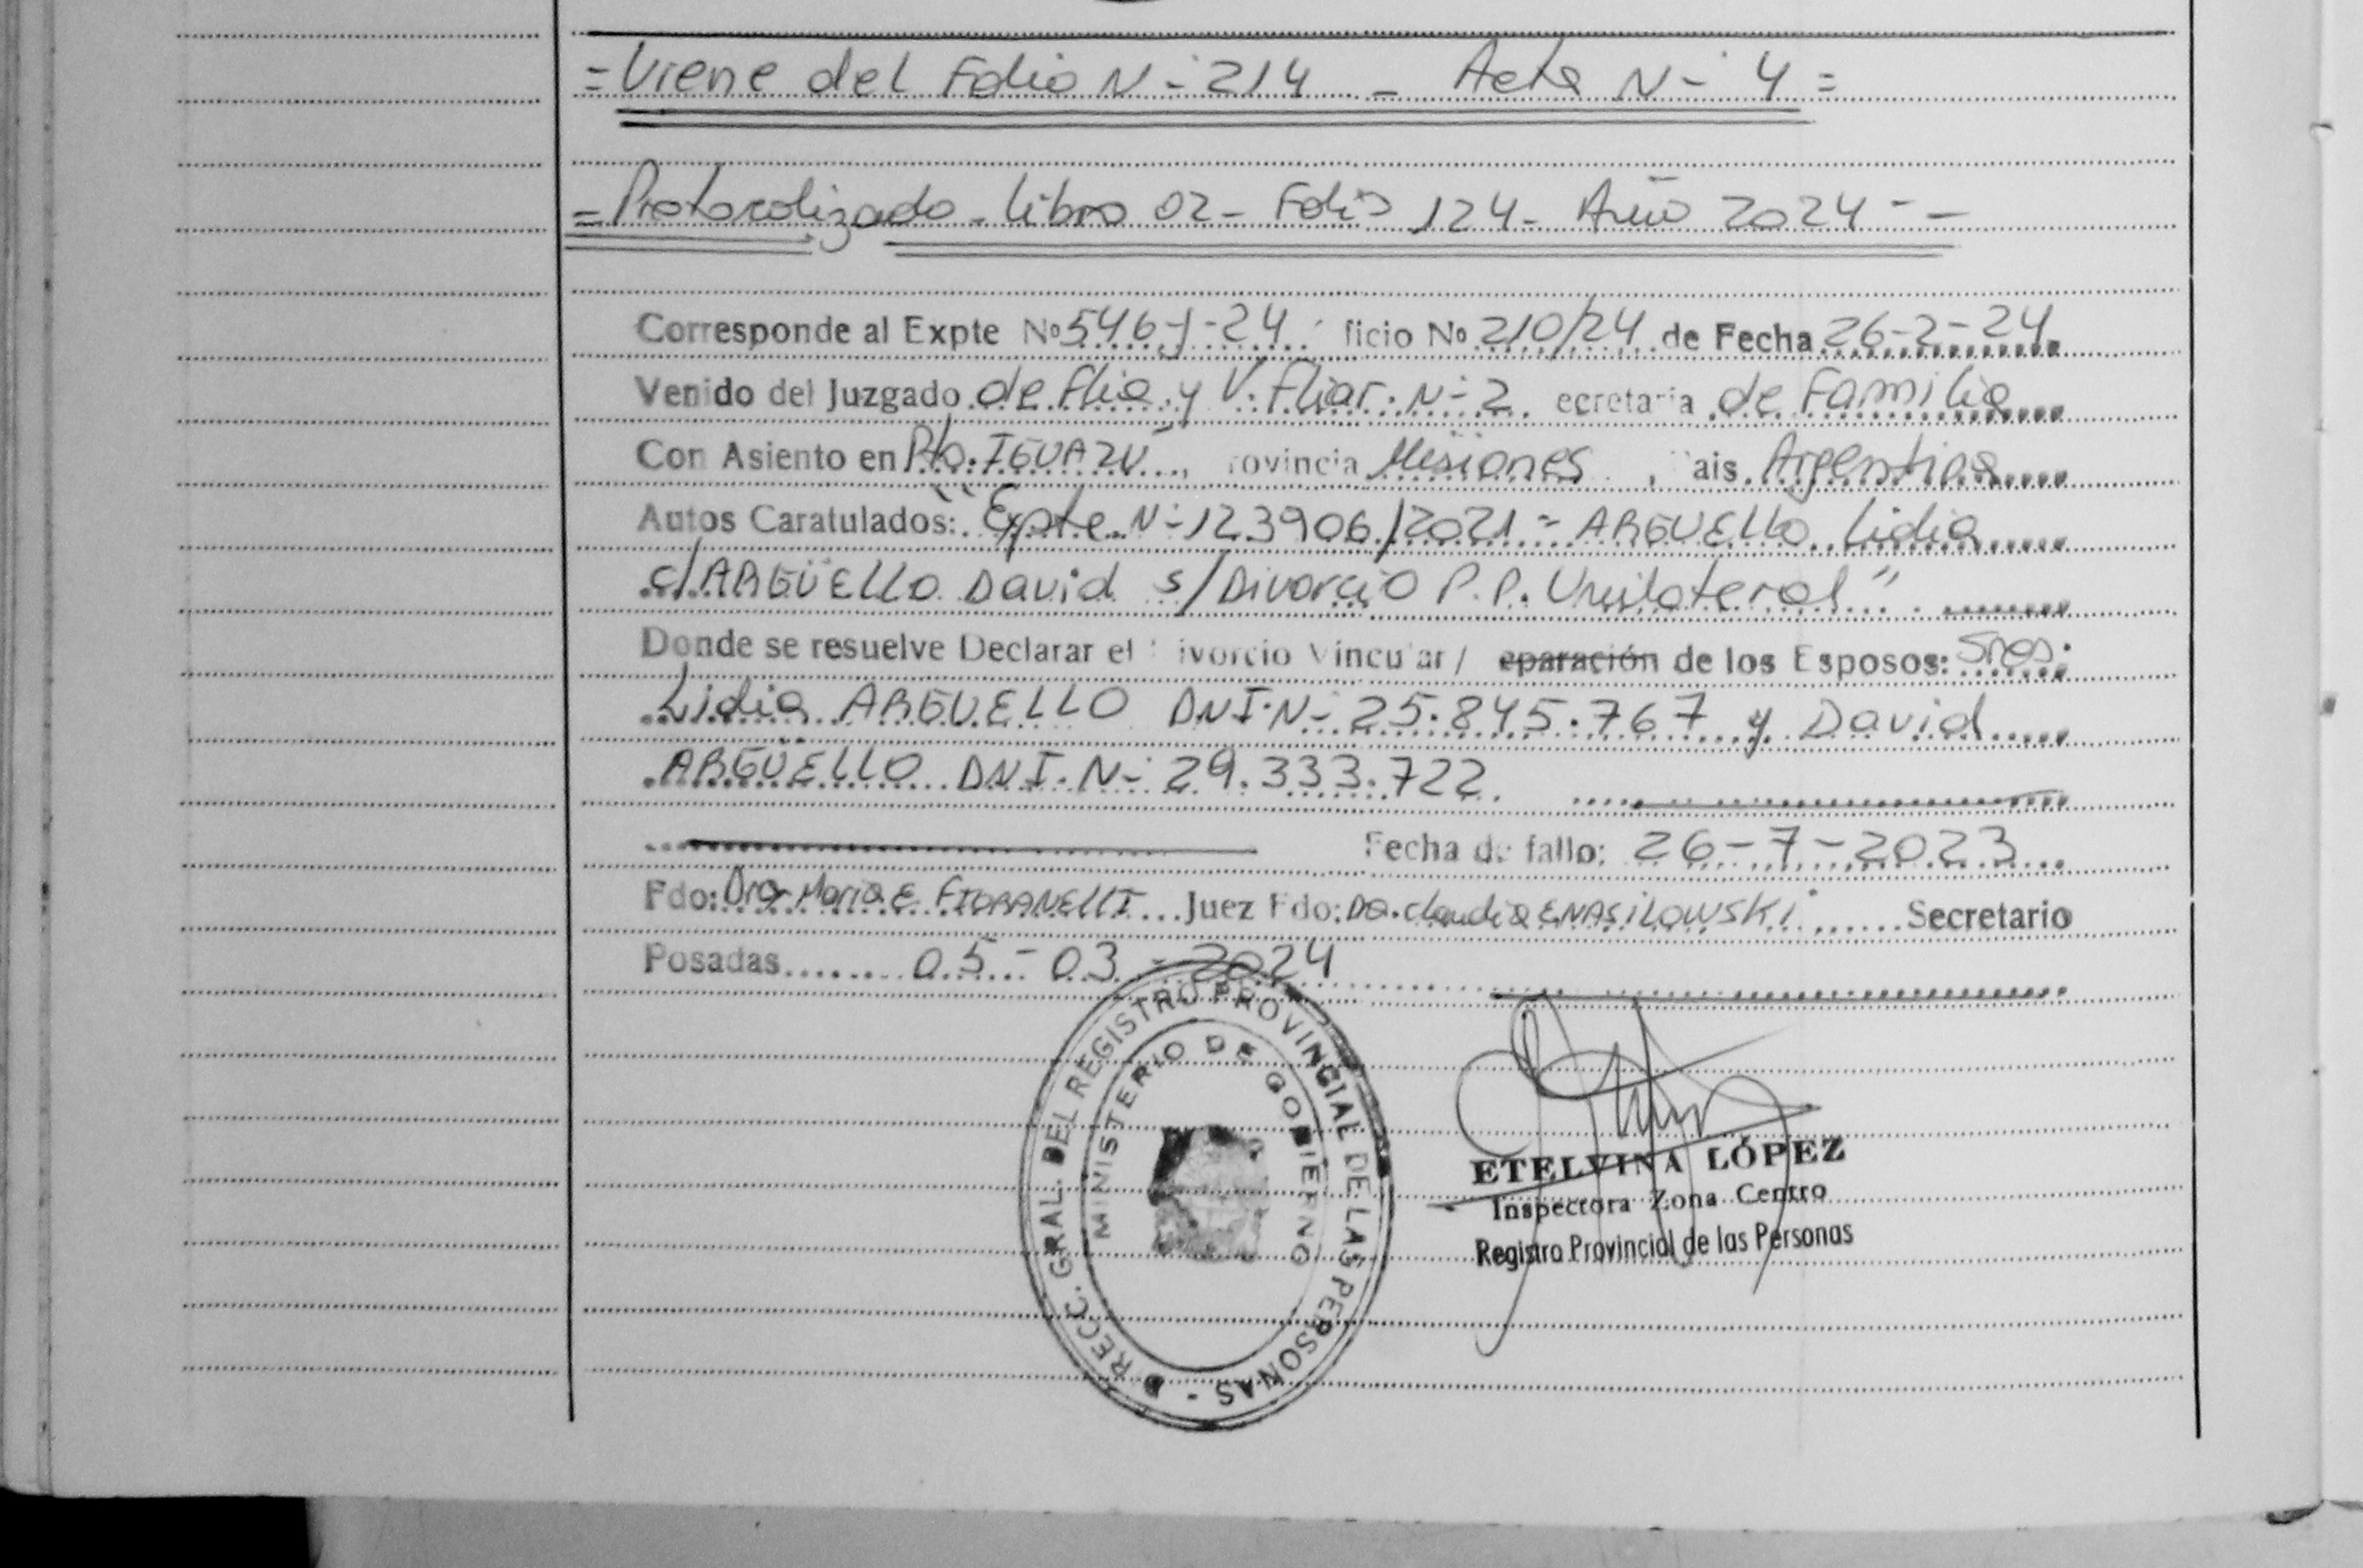 = Viene del Folio N- 214 - Acta N- 4 =
= Protocolizado - libro 02 - Folio 124 - Año 2024 - -
Corresponde al Expte Nº 546-J-24 ficio Nº 210/24 de Fecha 26-2-24
Venido del Juzgado de Flia y V. Fliar. N- 2 ecretaria de Familia
Con Asiento en Pto. IGUAZÚ, rovincia Misiones, ais Argentina
Autos Caratulados: "Expte N- 123906/2021 - ARGUELLO Lidia
c/ ARGÜELLO David s/ Divorcio P.P. Unilateral"
Donde se resuelve Declarar el ivorcio Vincular/ eparación de los Esposos: Sres.
Lidia ARGUELLO DNI. N- 25.845.767 y David
ARGÜELLO DNI. N- 29.333.722.
Fecha de fallo: 26-7-2023
Fdo: Dra. Maria E FIORANELLI Juez Fdo: Dra. Claudia E. WASILOWSKI Secretario
Posadas 05-03-2024
DIRECC. GRAL. DEL REGISTRO PROVINCIAL DE LAS PERSONAS -
MINISTERIO DE GOBIERNO
ETELVINA LÓPEZ
Inspectora Zona Centro
Registro Provincial de las Personas